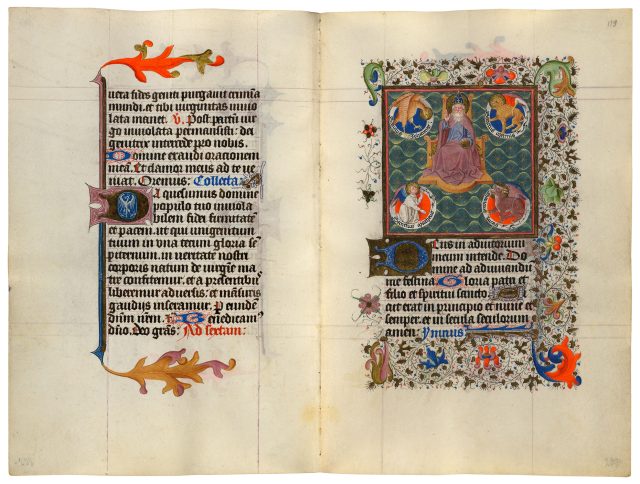 uera fides geniti purgauit crimīa
mundi. et tibi uirginitas inuio
lata manet. V. Post partū uir
go inuiolata permansisti: dei
genitrix intercede pro nobis.
Domine exaudi orationem
meā. Et clamor meus ad te ve
niat. Oremus: Collecta
Da quesumus domine
populo tuo inuiola
bilem fidei firmitatē
et pacem. ut qui unigenitum
tuum in una tecum gloria sē
piternum. in ueritate nostri
corporis natum de uirgīe ma
tre confitemur. et a presentibus
liberemur aduersis. et mansuris
gaudiis inseramur. P eundē
dn̄m n̄rm. Benedicam
dn̄o. Deo grās: Ad sextam:
119
Deus in adiutorium
meum intende. Do
mine ad adiuuandū
me festina. Gloria patri et
filio et spiritui sancto.
Sicut erat in principio et nunc et
semper. et in secula seculorum
amen: Ymnus